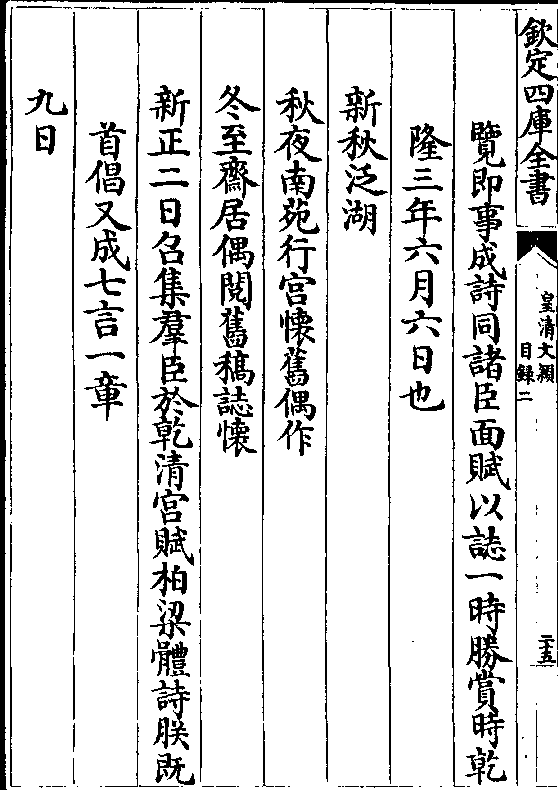 欽定四庫全書
皇清文穎
目録二
二十五
覽即事成詩同諸臣面賦以誌一時勝賞時乾
隆三年六月六日也
新秋泛湖
秋夜南苑行宫懐舊偶作
冬至齋居偶閱舊稿誌懐
新正二日召集羣臣於乾清宫賦柏梁體詩朕既
首倡又成七言一章
九日